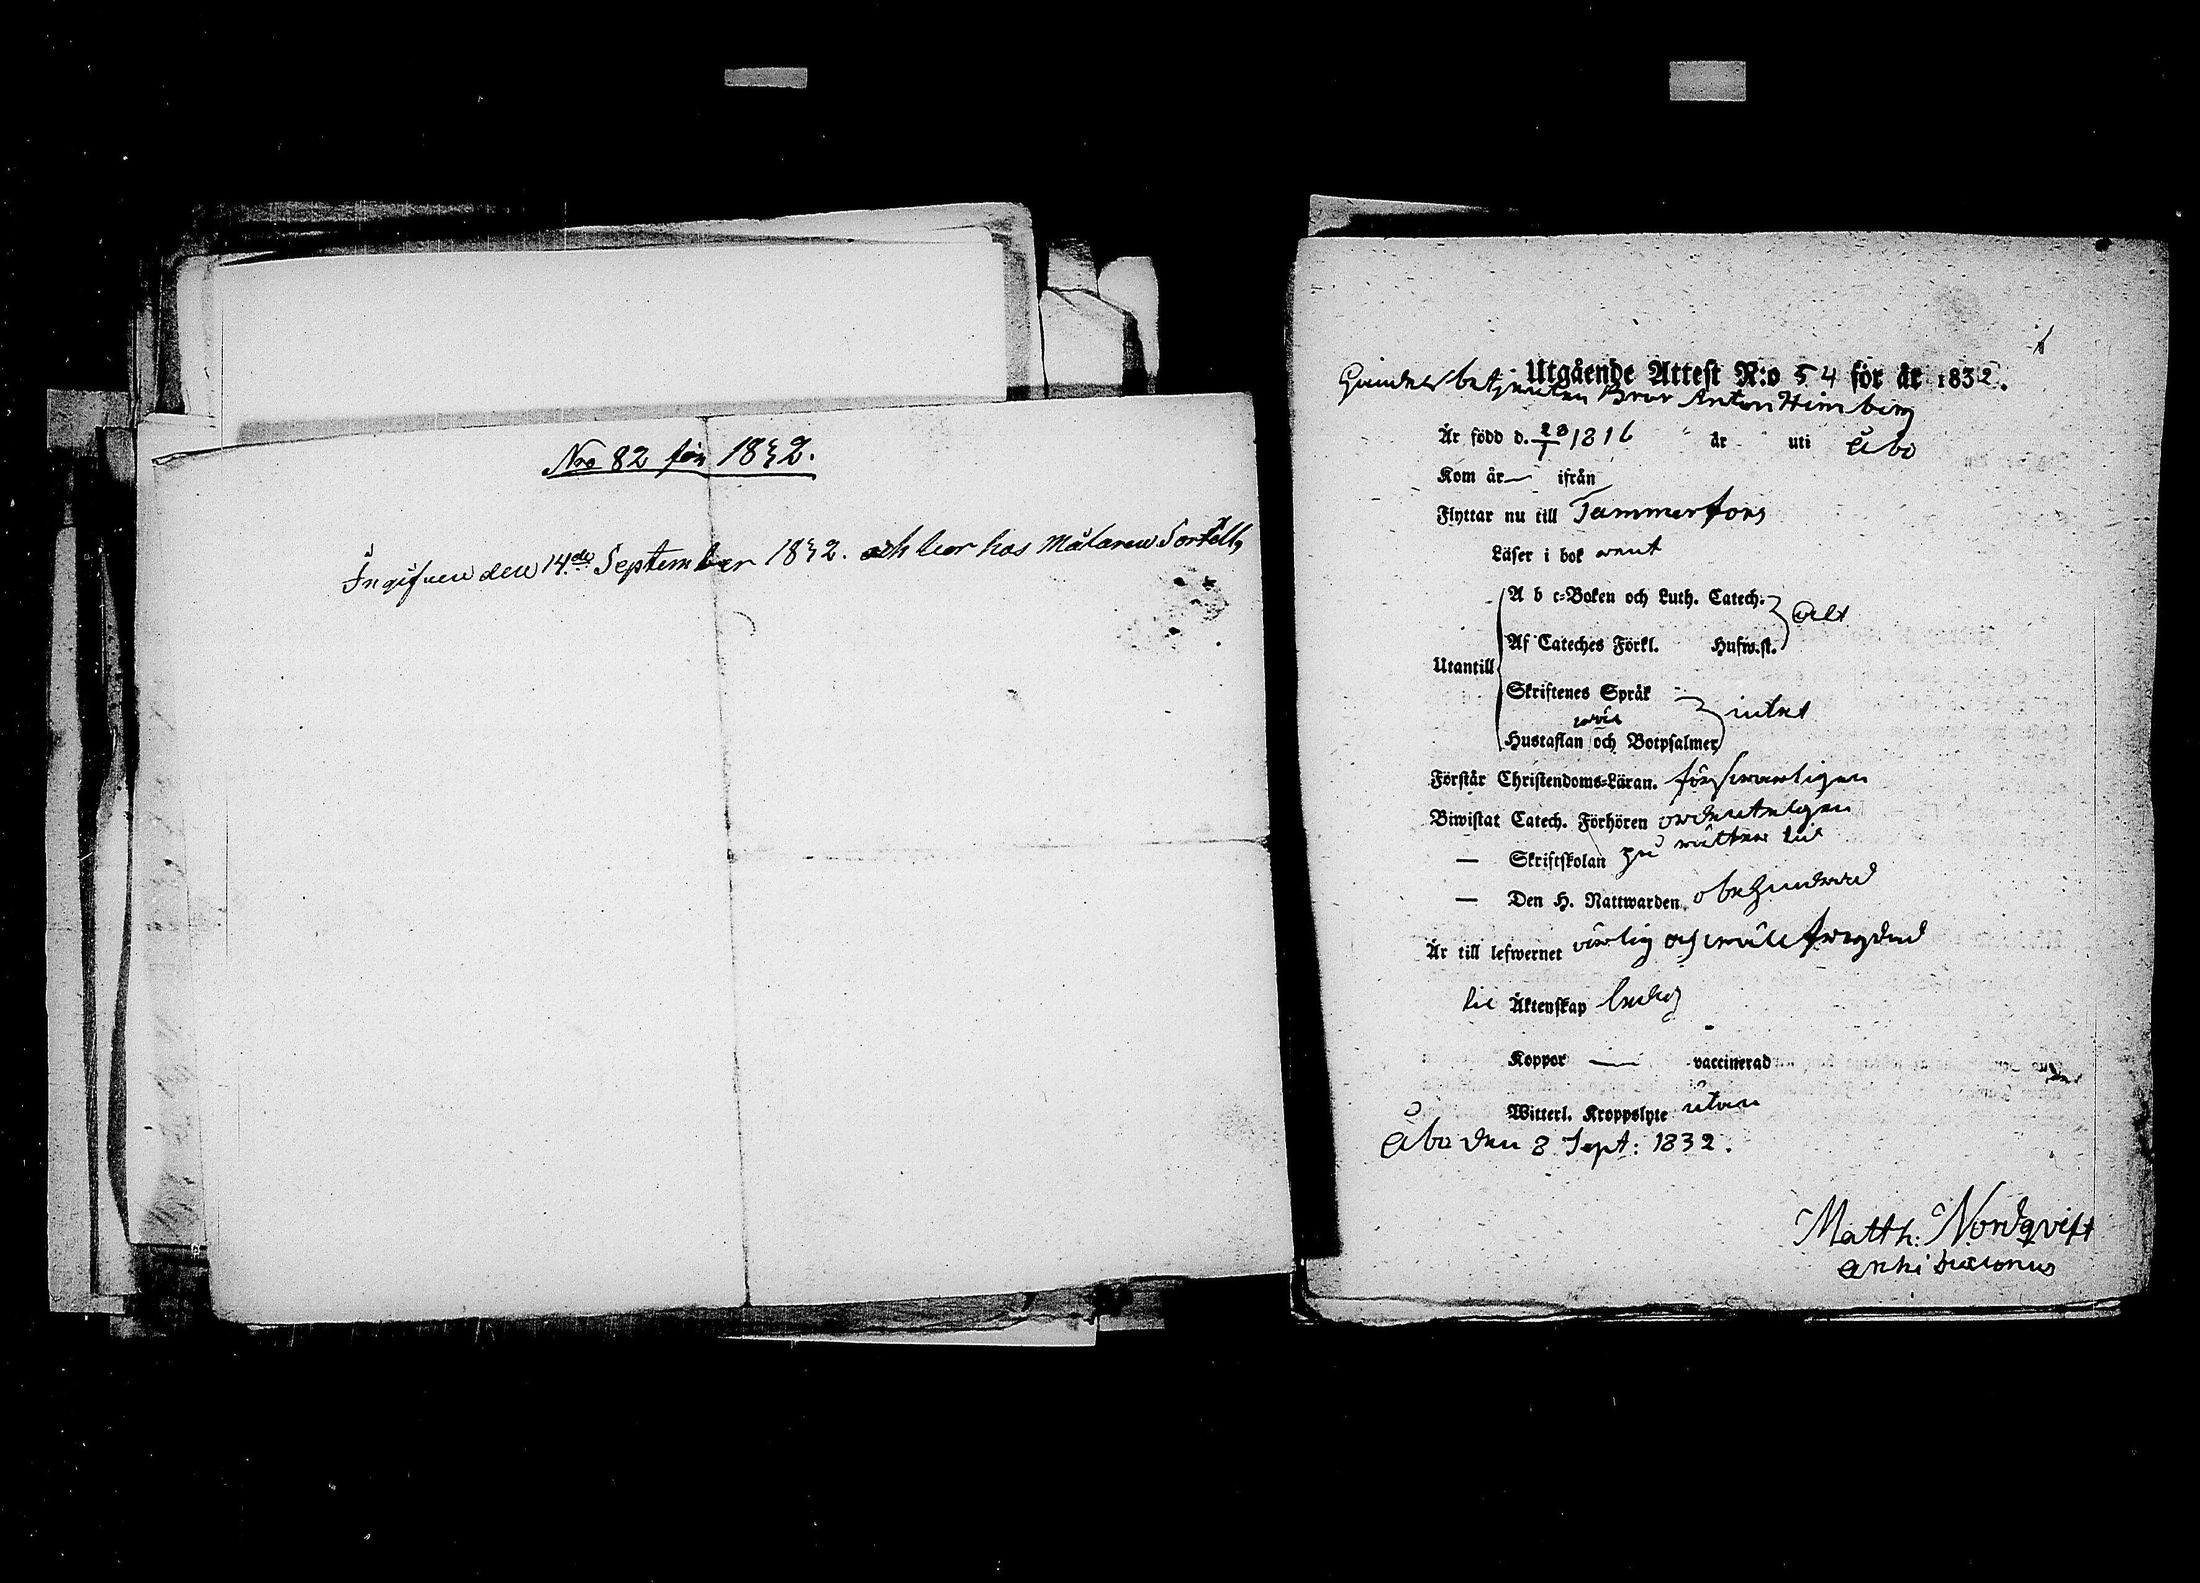 Nro 82 för 1832.
Ingifven den 14de September 1832. och bor hos Målaren Sortell,
Utgående Attest N:o 54 för år 1832.
Bror Anton Himberg
Är född d. 28/1 1816 år uti Åbo
Kom år — ifrån
Flyttar nu till Tammerfors
Läser i bok rent
A b c-Boken och Luth. Catech.
allt
Af Cateches Förkl. Hufw.st.
Utantill
Skriftenes Språk
intet
Hustaflan och Botpsalmer
Förstår Christendoms-Läran. försvarligen
Biwistat Catech. Förhören ordenteligen
— Skriftskolan
— Den H. Nattwarden obehindrad
Är till lefwernet ärlig och väl frägdad
till Äktenskap ledig
Koppor — vaccinerad
Witterl. Kroppslyte utan
Åbo den 8 Sept: 1832.
Matth: Nordqvist
Archi Diaconus